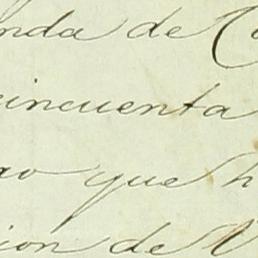 nda de C
cincuenta
que h
ion de V